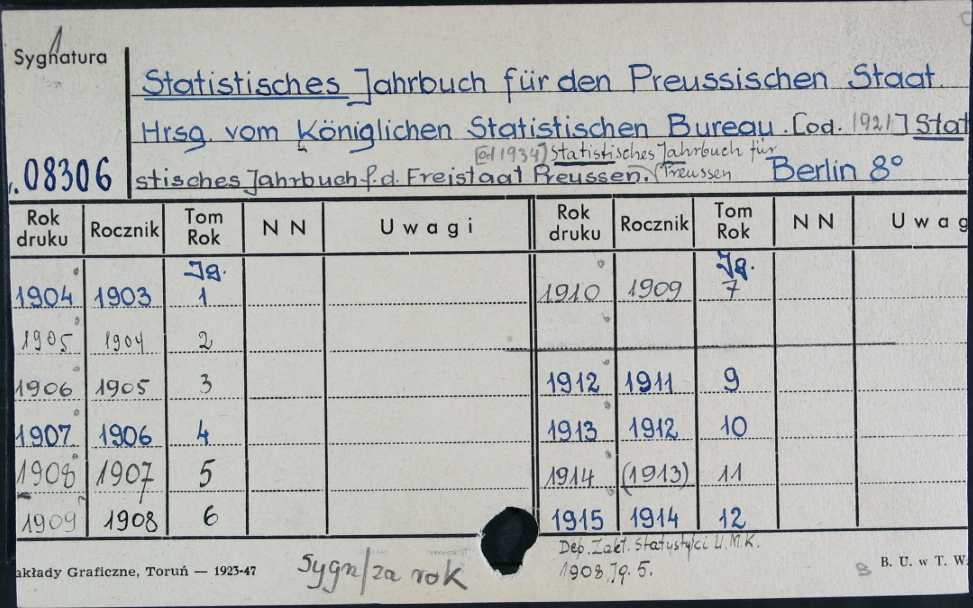 Sygnatura
Statistisches Jahrbuch für den Preussischen Staat.
Hrsg. vom Königlichen Statistischen Bureau. [od. 1921] Stati
[od 1934] Statistisches Jahrbuch für
08306 stistisches Jahrbuch f.d. Freistaat Preussen. Preussen Berlin 8°
Rok druku Rocznik Tom Rok N N Uwagi Rok druku Rocznik Tom Rok N N Uwag
Jg. Jg.
1904 1903 1 1910 1909 7
1905 1904 2
1906 1905 3 1912 1911 9
1907 1906 4 1913 1912 10
1908 1907 5 1914 (1913) 11
1909 1908 6 1915 1914 12
Dep. Zakł. Statystyci U.M.K.
akłady Graficzne, Toruń — 1923-47 Sygn/za rok 1908 Jg. 5. B. U. w T. W